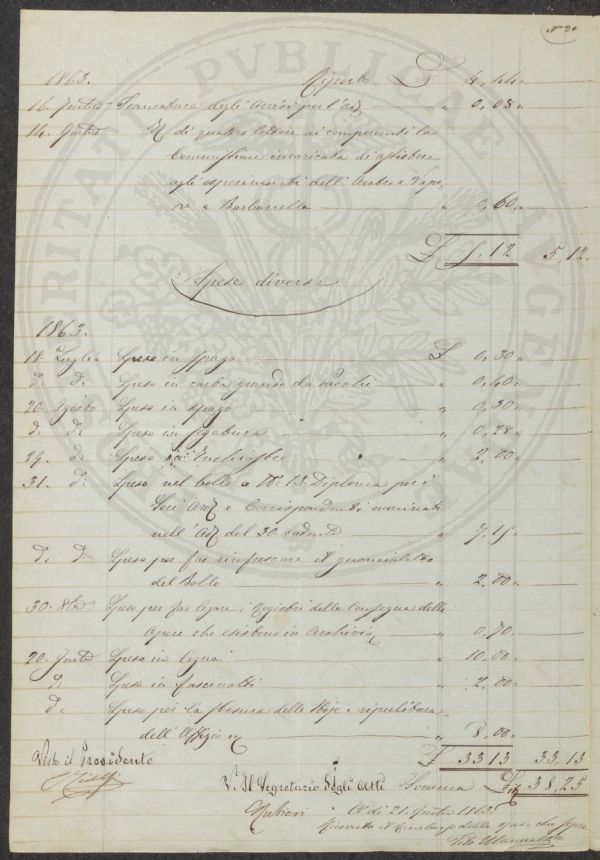 N° 20
1863. Riporto £ 4,44
16. Francatura degli Avvisi per l' " 0,08
14. di quattro lettere ai componenti la
Commissione incaricata di assistere
agli esperimenti dell' Aratro a Vapo-
re a Barbarella " 0,60
£ 5.12 5,12
Spese diverse
1863.
18. Luglio Spese in spago £ 0,30
d. d. Spese in carta grande da pacchi " 0,40
20. Agosto Spese in spago " 0,30
d. d. Spese in " 0,28
29. d. Spese " 2,00
31. d. Spese nel bollo a N.° 13 Diplomi per i
Soci e Corrispondenti nominati
nell' del 30. " 7.15
d. d. Spese per far rinfrescare il guancialetto
del Bollo " 2,00
30. 8bre Spese per far legare i Registri della Consegna delle
Opere che esistono in Archivio " 0,70
20. Spese in legna " 10,00
d. Spese in fascinotti " 2,00
d. Spese per la stesura delle Stoje e ripulitura
dell' Uffizio " 8,00
£ 33 13 33,13
Visto il Presidente
V. Il Segretario degli Atti Somma £ 38,25
Rubieri A dì 21. 1863.
Ricevuto il rimborso delle spese che sopra